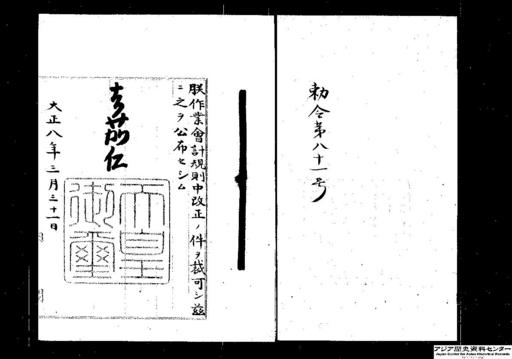 勅令第八十一号
朕作業會計規則中改正ノ件ヲ裁可シ茲
ニ之ヲ公布セシム
嘉仁
天皇御璽
大正八年三月三十一日
アジア歴史資料センター
Japan Center for Asian Historical Records